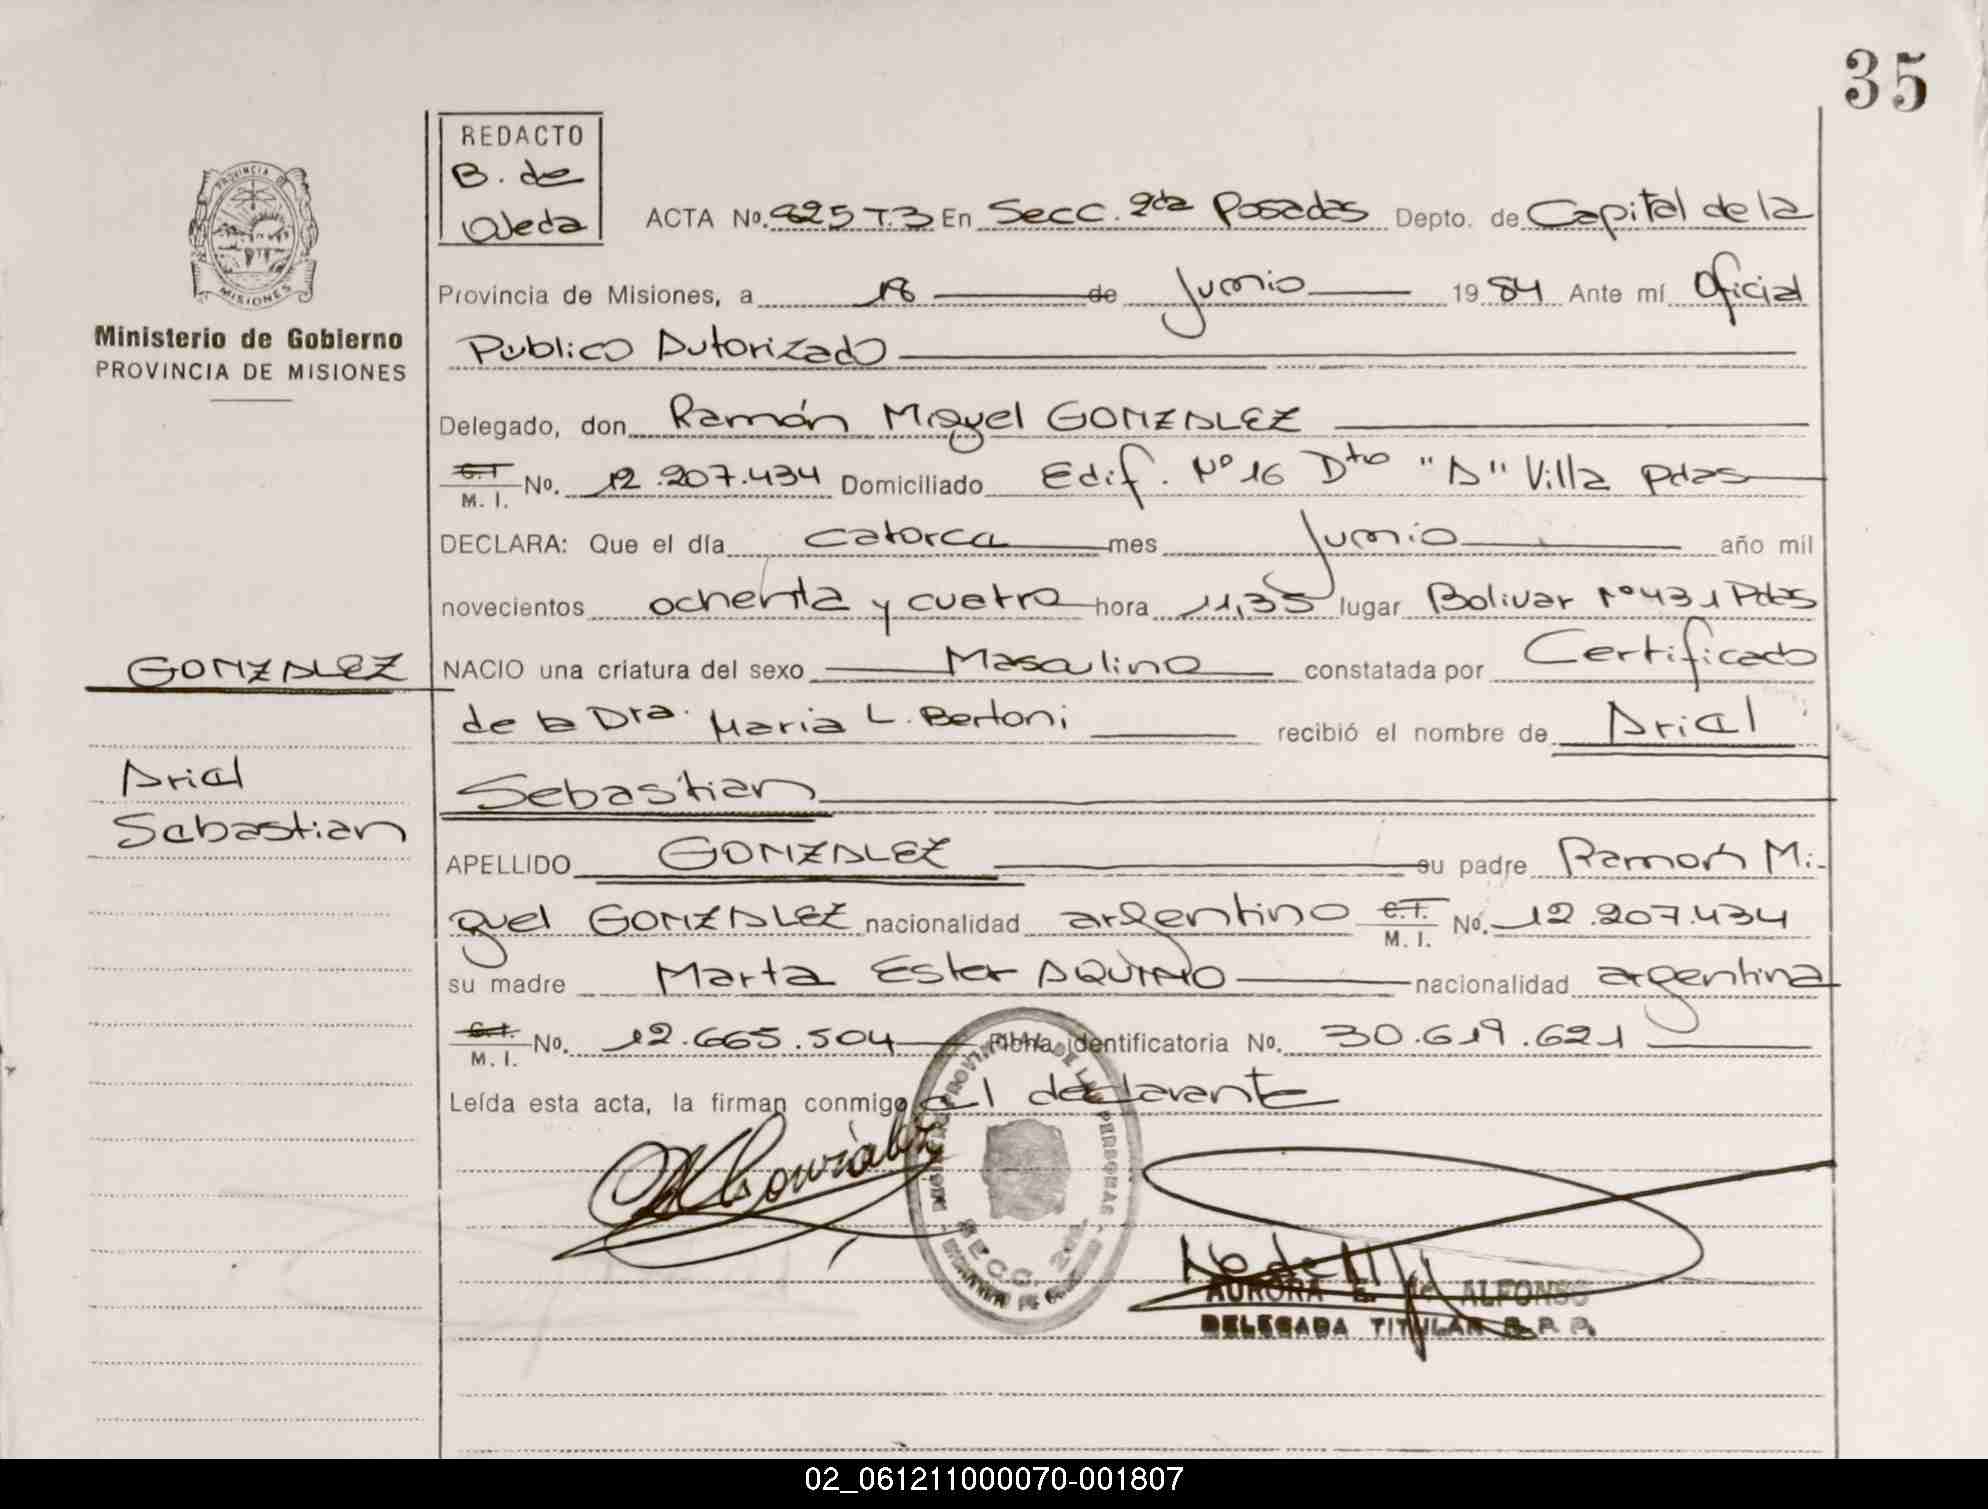 35
REDACTO
B. de
Ojeda
PROVINCIA DE
MISIONES
Ministerio de Gobierno
PROVINCIA DE MISIONES
ACTA No. 625 T.3 En Secc. 2da Posadas Depto. de Capital de la
Provincia de Misiones, a 18 de Junio 1984 Ante mí Oficial
Publico Autorizado
Delegado, don Ramón Miguel GONZALEZ
C.I. M. I. No. 12.207.434 Domiciliado Edif. Nº 16 Dto "A" Villa Pdas
DECLARA: Que el día catorce mes Junio año mil
novecientos ochenta y cuatro hora 11,35 lugar Bolivar Nº 431 Pdas
GONZALEZ
NACIO una criatura del sexo Masculino constatada por Certificado
de la Dra. Maria L. Bertoni recibió el nombre de Ariel
Ariel
Sebastian
Sebastian
APELLIDO GONZALEZ su padre Ramón Mi-
guel GONZALEZ nacionalidad argentino C.I. M. I. No. 12.207.434
su madre Marta Ester AQUINO nacionalidad argentina
C.I. M. I. No. 12.665.504 Ficha identificatoria No. 30.619.621
Leída esta acta, la firman conmigo el declarante
SECC. 2da
AURORA E. de ALFONSO
DELEGADA TITULAR R. P. P.
02_061211000070-001807